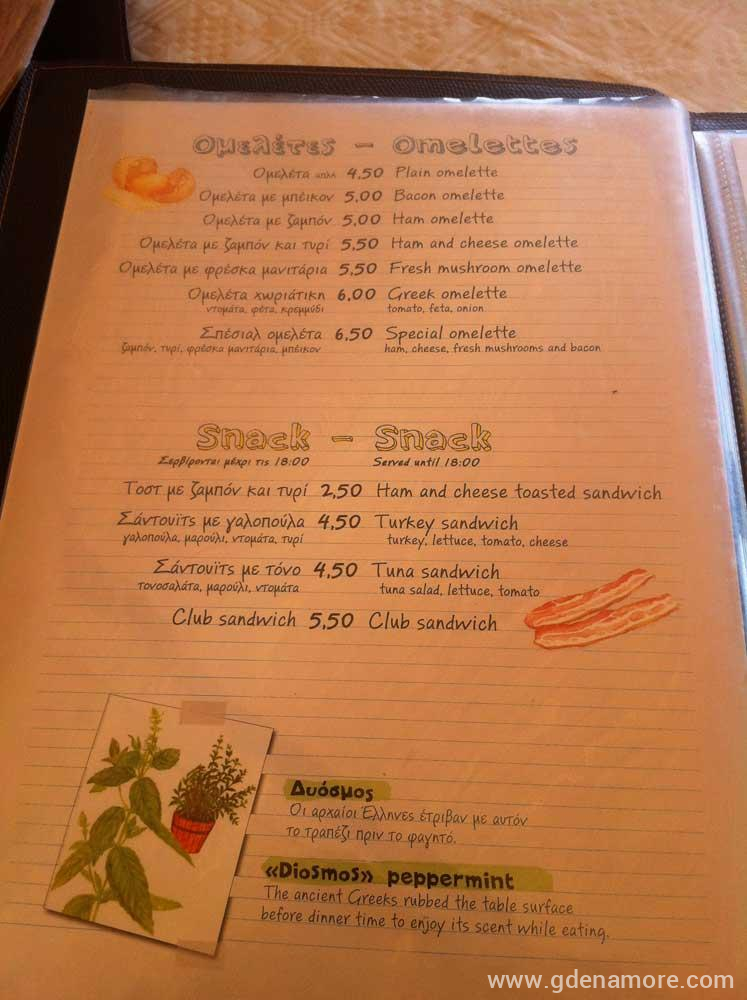 Ομελέτες - Omelettes
Ομελέτα απλή 4,50 Plain omelette
Ομελέτα με μπέικον 5,00 Bacon omelette
Ομελέτα με ζαμπόν 5,00 Ham omelette
Ομελέτα με ζαμπόν και τυρί 5,50 Ham and cheese omelette
Ομελέτα με φρέσκα μανιτάρια 5,50 Fresh mushroom omelette
Ομελέτα χωριάτικη 6,00 Greek omelette
ντομάτα, φέτα, κρεμμύδι tomato, feta, onion
Σπέσιαλ ομελέτα 6,50 Special omelette
ζαμπόν, τυρί, φρέσκα μανιτάρια, μπέικον ham, cheese, fresh mushrooms and bacon
Snack - Snack
Σερβίρονται μέχρι τις 18:00 Served until 18:00
Τοστ με ζαμπόν και τυρί 2,50 Ham and cheese toasted sandwich
Σάντουϊτς με γαλοπούλα 4,50 Turkey sandwich
γαλοπούλα, μαρούλι, ντομάτα, τυρί turkey, lettuce, tomato, cheese
Σάντουϊτς με τόνο 4,50 Tuna sandwich
τονοσαλάτα, μαρούλι, ντομάτα tuna salad, lettuce, tomato
Club sandwich 5,50 Club sandwich
Δυόσμος
Οι αρχαίοι Έλληνες έτριβαν με αυτόν
το τραπέζι πριν το φαγητό.
«Diosmos» peppermint
The ancient Greeks rubbed the table surface
before dinner time to enjoy its scent while eating.
www.gdenamore.com